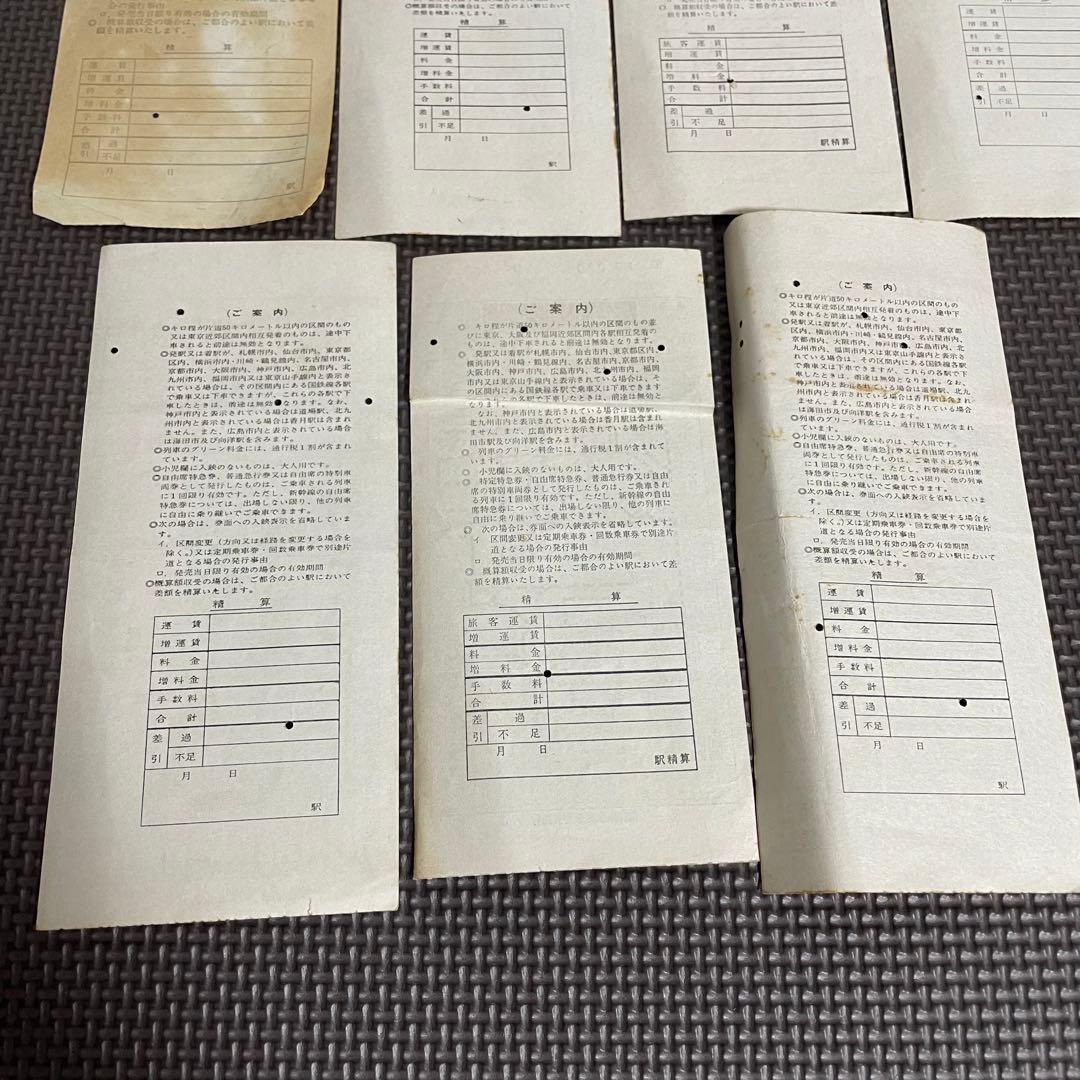 合の発行事由
ロ．発売当日限り有効の場合の有効期間
◎概算額収受の場合は、ご都合のよい駅において差
額を精算いたします。
精　算
運　賃
増運賃
料　金
増料金
手数料
合　計
差　過
引　不足
月　日
駅
◎概算額収受の場合は、ご都合のよい駅において
差額を精算いたします。
精　算
運　賃
増運賃
料　金
増料金
手数料
合　計
差　過
引　不足
月　日
駅
◎概算額収受の場合は、ご都合のよい駅において差
額を精算いたします。
精　算
旅客運賃
増運賃
料　金
増料金
手数料
合　計
差　過
引　不足
月　日
駅精算
運　賃
増運賃
料　金
増料金
手数料
合　計
差　過
引　不足
月　日
（ご案内）
◎キロ程が片道50キロメートル以内の区間のもの
又は東京近郊区間内相互発着のものは、途中下
車されると前途は無効となります。
◎発駅又は着駅が、札幌市内、仙台市内、東京都
区内、横浜市内・川崎・鶴見線内、名古屋市内、
京都市内、大阪市内、神戸市内、広島市内、北
九州市内、福岡市内又は東京山手線内と表示さ
れている場合は、その区間内にある国鉄線各駅
で乗車又は下車できますが、これらの各駅で下
車したときは、前途は無効になります。なお、
神戸市内と表示されている場合は道場駅、北九
州市内と表示されている場合は香月駅は含まれ
ません。また、広島市内と表示されている場合
は海田市及び向洋駅を含みます。
◎列車のグリーン料金には、通行税1割が含まれ
ています。
◎小児欄に入鋏のないものは、大人用です。
◎自由席特急券、普通急行券又は自由席の特別車
両券として発行したものは、ご乗車される列車
に1回限り有効です。ただし、新幹線の自由席
特急券については、出場しない限り、他の列車
に自由に乗り継いでご乗車できます。
◎次の場合は、券面への入鋏表示を省略していま
す。
イ．区間変更（方向又は経路を変更する場合を
除く。）又は定期乗車券・回数乗車券で別途片
道となる場合の発行事由
ロ．発売当日限り有効の場合の有効期間
◎概算額収受の場合は、ご都合のよい駅において
差額を精算いたします。
精　算
運　賃
増運賃
料　金
増料金
手数料
合　計
差　過
引　不足
月　日
駅
（ご案内）
◎ キロ程が片道50キロメートル以内の区間のもの並
びに東京、大阪及び福岡近郊区間内各駅相互発着の
ものは、途中下車されると前途は無効となります。
◎ 発駅又は着駅が、札幌市内、仙台市内、東京都区内、
横浜市内・川崎・鶴見線内、名古屋市内、京都市内、
大阪市内、神戸市内、広島市内、北九州市内、福岡
市内又は東京山手線内と表示されている場合は、そ
の区間内にある国鉄線各駅で乗車又は下車できます
が、これらの各駅で下車したときは、前途は無効になります。
なお、神戸市内と表示されている場合は道場駅、
北九州市内と表示されている場合は香月駅は含ま
れません。また、広島市内と表示されている場合は海
田市駅及び向洋駅を含みます。
◎ 列車のグリーン料金には、通行税1割が含まれて
います。
◎ 小児欄に入鋏のないものは、大人用です。
◎ 特定特急券・自由席特急券、普通急行券又は自由
席の特別車両券として発行したものは、ご乗車され
る列車に1回限り有効です。ただし、新幹線の自由
席特急券については、出場しない限り、他の列車に
自由に乗り継いでご乗車できます。
◎ 次の場合は、券面への入鋏表示を省略しています。
イ　区間変更又は定期乗車券・回数乗車券で別途片
道となる場合の発行事由
ロ　発売当日限り有効の場合の有効期間
◎ 概算額収受の場合は、ご都合のよい駅において差
額を精算いたします。
精　算
旅客運賃
増運賃
料　金
増料金
手数料
合　計
差　過
引　不足
月　日
駅精算
（ご案内）
◎キロ程が片道50キロメートル以内の区間のもの
又は東京近郊区間内相互発着のものは、途中下
車されると前途は無効となります。
◎発駅又は着駅が、札幌市内、仙台市内、東京都
区内、横浜市内・川崎・鶴見線内、名古屋市内、
京都市内、大阪市内、神戸市内、広島市内、北
九州市内、福岡市内又は東京山手線内と表示さ
れている場合は、その区間内にある国鉄線各駅
で乗車又は下車できますが、これらの各駅で下
車したときは、前途は無効になります。なお、
神戸市内と表示されている場合は道場駅、北九
州市内と表示されている場合は香月駅は含まれ
ません。また、広島市内と表示されている場合
は海田市及び向洋駅を含みます。
◎列車のグリーン料金には、通行税1割が含まれ
ています。
◎小児欄に入鋏のないものは、大人用です。
◎自由席特急券、普通急行券又は自由席の特別車
両券として発行したものは、ご乗車される列車
に1回限り有効です。ただし、新幹線の自由席
特急券については、出場しない限り、他の列車
に自由に乗り継いでご乗車できます。
◎次の場合は、券面への入鋏表示を省略していま
す。
イ．区間変更（方向又は経路を変更する場合を
除く。）又は定期乗車券・回数乗車券で別途片
道となる場合の発行事由
ロ．発売当日限り有効の場合の有効期間
◎概算額収受の場合は、ご都合のよい駅において
差額を精算いたします。
精　算
運　賃
増運賃
料　金
増料金
手数料
合　計
差　過
引　不足
月　日
駅